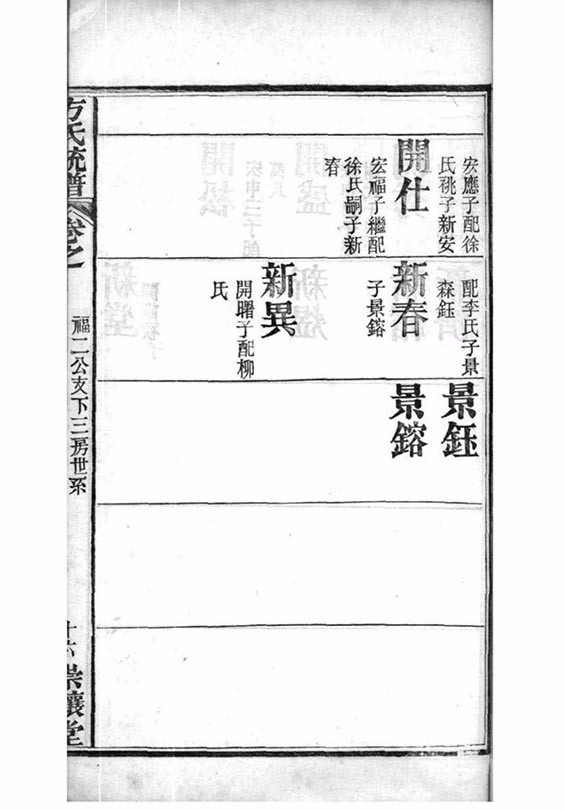 宏應子配徐
氏祧子新安
開仕
宏福子繼配
徐氏嗣子新
春
配李氏子景
森鈺
新春
子景鎔
新異
開曙子配柳
氏
景鈺
景鎔
方氏統譜
卷之
福二公支下三房世系
十六
崇讓堂